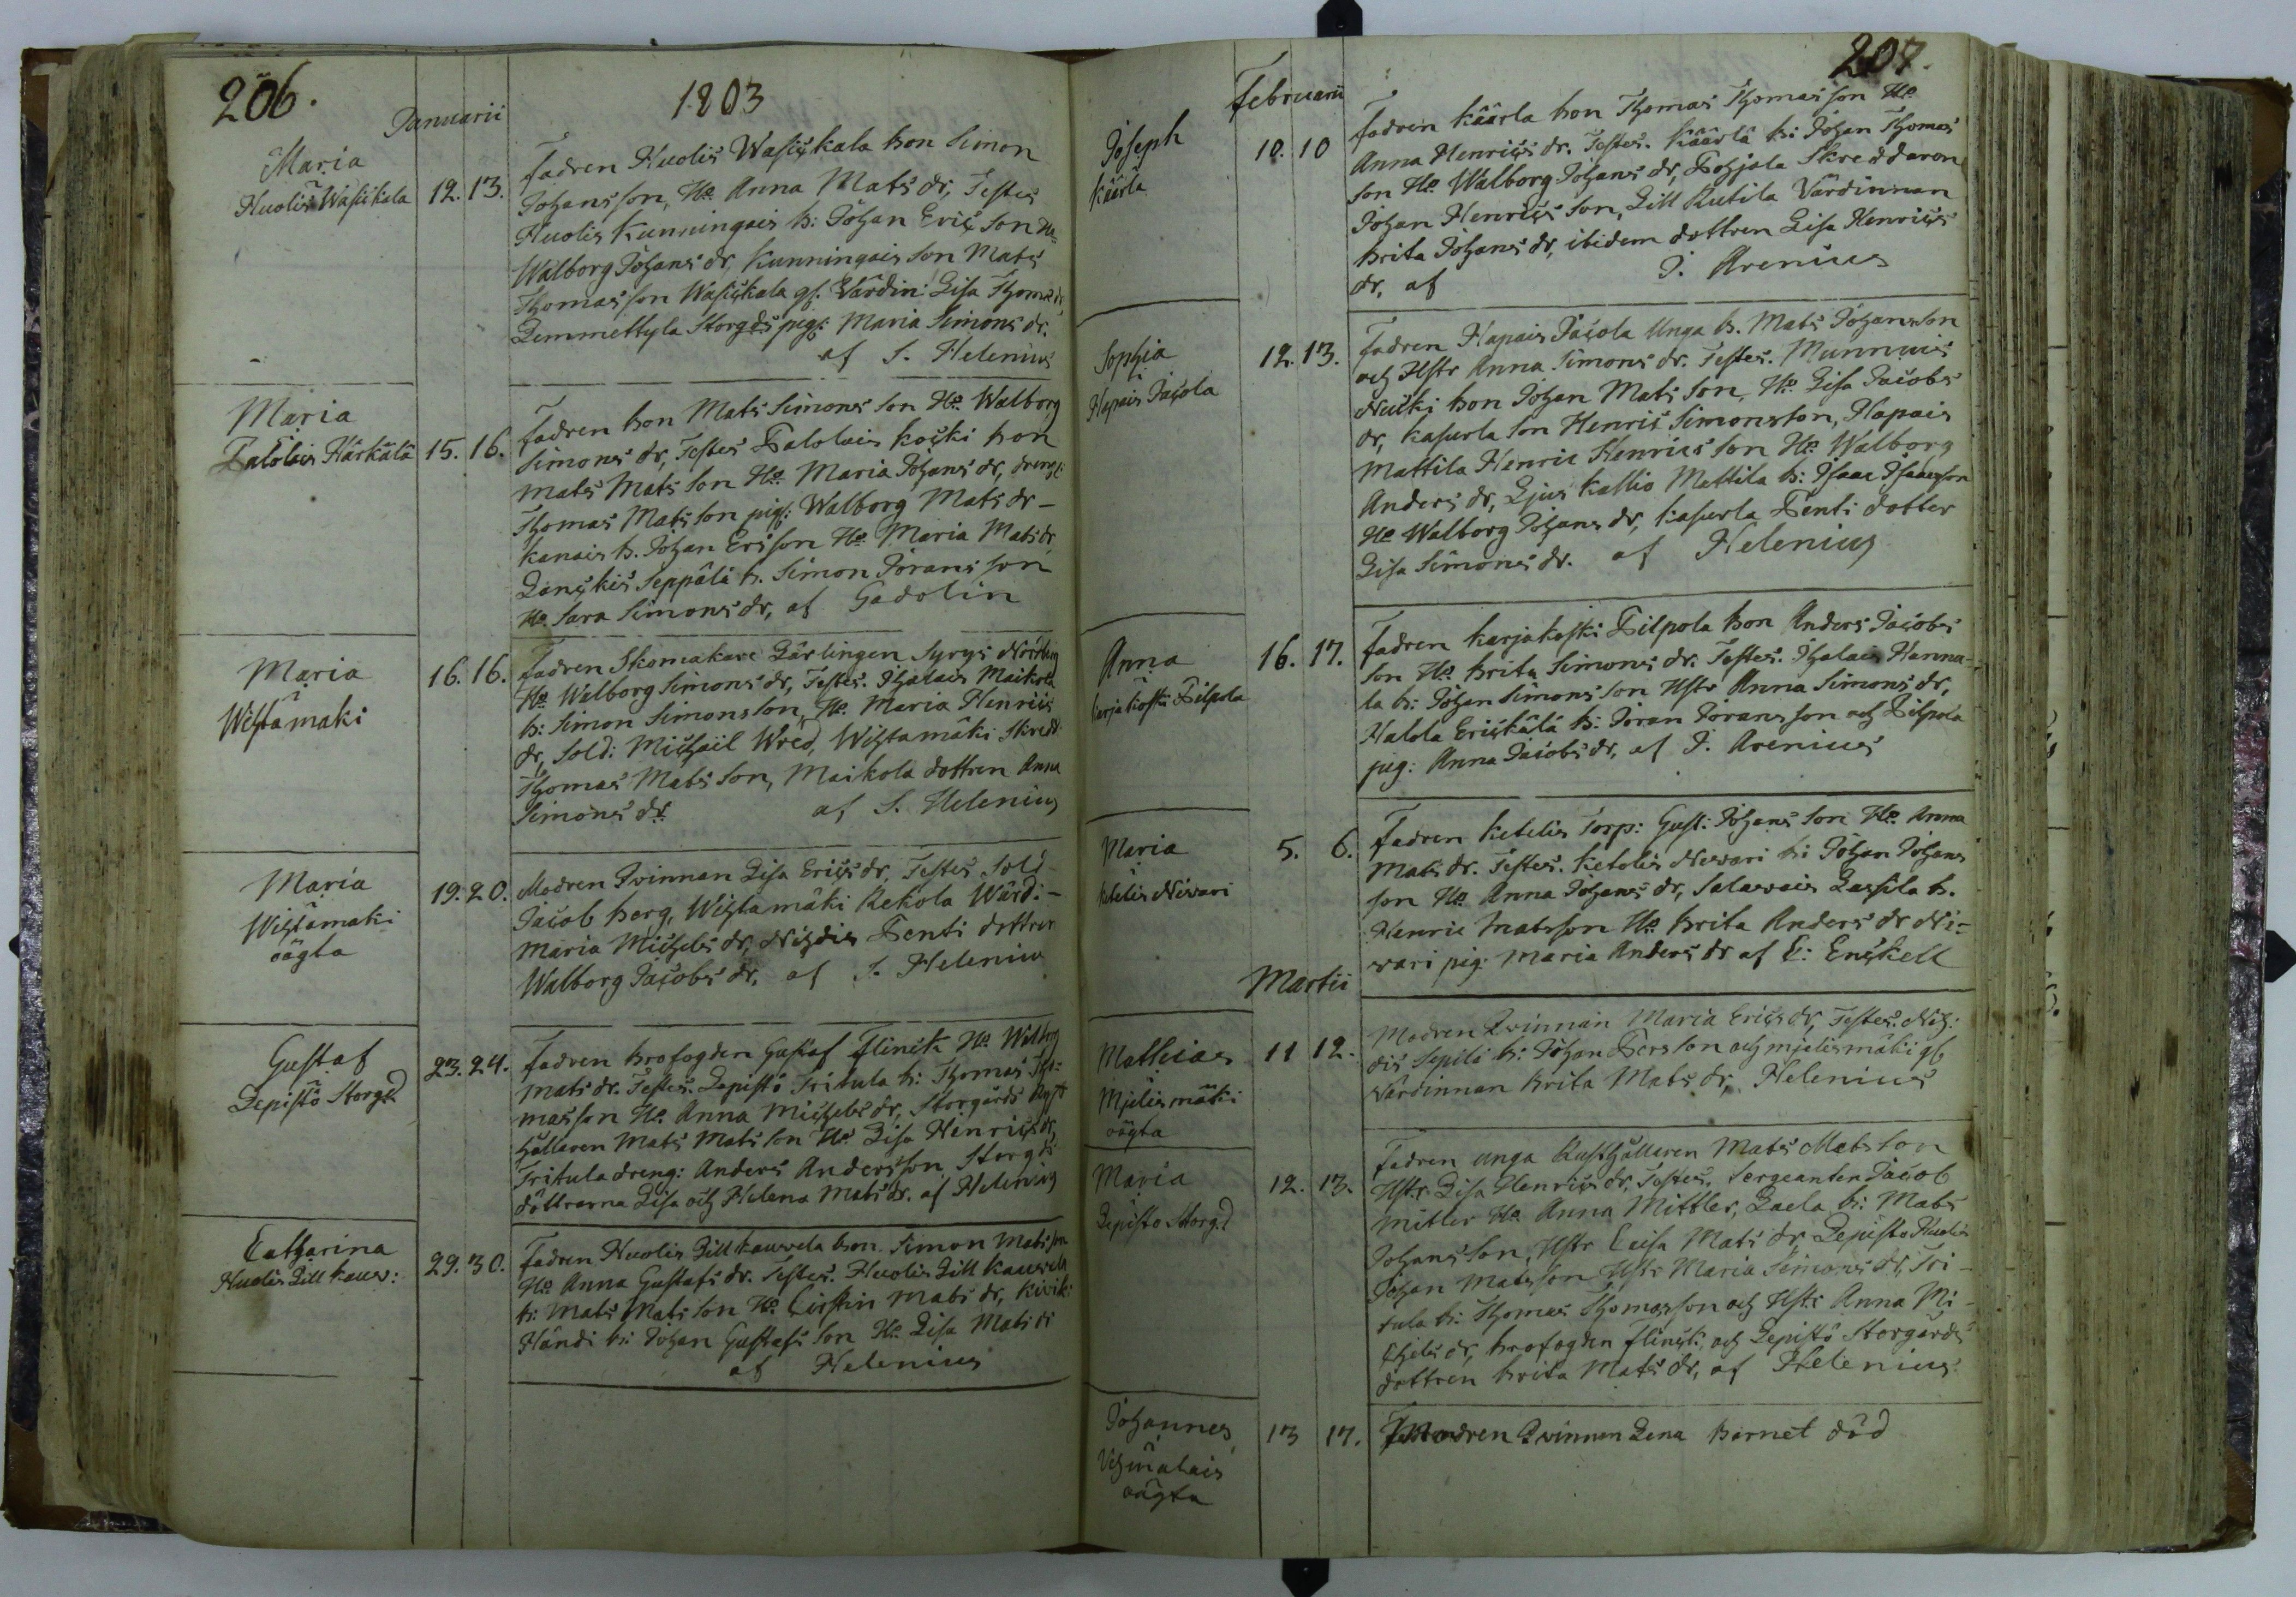 206.
Januarii
1803
Maria
Huolis Wasikala
12. 13.
Fadren Huolis Wasikkala bon Simon
Johansson, Ho. Anna Mats dr, Testes
Huolis Kunningais b: Johan Ericsson Ho.
Walborg Johans dr, Kunningais son Mats
Thomasson Wasikkala gl. Värdin: Lisa Thomædr,
Lemmettyla Storgds pig: Maria Simons dr.
af S. Helenius
Maria
Palolais Härkälä
15. 16.
Fadren bon Mats Simonsson Ho. Walborg
Simons dr, Testes Palolais Koski bon
Mats Matsson Ho. Maria Johans dr, dreng:
Thomas Matsson pig: Walborg Mats dr -
Kanais b. Johan Ersson Ho. Maria Mats dr,
Seppälä b. Simon Jöransson
Ho. Sara Simons dr, af Gadolin
Maria
i
Wihtamäki
16. 16.
Fadren Skomakare Lärlingen Nordling
Ho. Walborg Simons dr, Testes. Maikola
b: Simon Simonsson, Ho. Maria Henrics
dr, Sold: Michail Wred, Wihtamäki Skredd:
Thomas Matsson, Maikola dottren Anna
Simons dr. af S. Helenius
Maria
Wihtamaki
oägta
19. 20.
Modren Qvinnan Lisa Erics dr, Testes Sold
Jacob berg, Wihtamäki Rekola Wärd: -
Maria Michels dr, Nihdis Penti dottren
Walborg Jacobs dr. af S. Helenius
Gustaf
Lepistö Storgd
23. 24.
Fadren brofogden Gustaf Flinck Ho. Walborg
Mats dr. Testes. Lepistö Tritula b: Thomas Tho=
masson Ho. Anna Michels dr, Storgårds Rust
hållaren Mats Matsson Ho. Lisa Henrics dr,
Tritula dreng: Anders Andersson, Storgds
döttrarna Lisa och Helena Mats dr. af Helenius
Catharina
Huolis Lill Kauv:
29. 30.
Fadren Huolis Lill Kauvela bon. Simon Matsson
Ho. Anna Gustafs dr. Testes. Huolis Lill Kauvela
b: Mats Matsson Ho. Cirstin Mats dr, Kivik:
Händi b: Johan Gustafsson Ho. Lisa Mats dr
af Helenius
207.
Februarii
Joseph
Käärla
10. 10
Fadren Käärla bon Thomas Thomasson Ho
Anna Henrics dr. Testes. Käärlä b: Johan Thomas
son Ho. Walborg Johans dr, Pohjola Skreddaren
Johan Henricsson, Lill Rutila Värdinnan
Brita Johans dr, ibidem dottren Lisa Henrics
dr, af J. Arenius
Sophia
i
Hapais Jacola
12. 13.
Fadren Hapais Jacola Unga b. Mats Johansson
och Hstr Anna Simons dr. Testes. Munnuis
Nuiki bon Johan Matsson, Ho. Lisa Jacobs
dr, Kaseerla son Henric Simonsson, Hapais
Mattila Henric Henricsson Ho. Walborg
Anders dr, kallio Mattila b: Isaac Isaacsson
Ho Walborg Johans dr, Penti dotter
Lisa Simons dr. af Helenius
Anna
Karjakoski Pilpola
16. 17.
Fadren Karjakoski Pilpola bon Anders Jacobs
son Ho. Brita Simons dr. Testes. Hanna=
la b: Johan Simonsson Hstr Anna Simons dr,
Halola Erickälä b: Jöran Jöransson och Pilpola
pig: Anna Jacobs dr, af J. Arenius
Maria
i
Ketelis Nivari
5. 6.
Fadren Ketelis Torp: Gust: Johansson Ho. Anna
Mats dr. Testes. Ketolis Nevari b: Johan Johans
son Ho. Anna Johans dr, Salavais Lassila b.
Henric Matsson Ho. Brita Anders dr Ni=
vari pig: Maria Anders dr af C: Enckell
Martii
Matthias
i
Mjelismäki
oägta
11 12.
Modren Qvinnan Maria Erics dr, Testes. Nih:
dis Sepälä b: Johan Persson och Mjelismäki gl
Värdinnan Brita Mats dr, Helenius
Maria
Lepisto Storgd
12. 13.
Fadren unga Rusthållaren Mats Matsson
Hstr Lisa Henrics dr, Testes. Sergeanten Jacob
Mitler Ho. Anna Mittler, Laela b: Mats
Johansson, Hstr Caisa Mats dr, Lepisto Huolis
Johan Matsson Hstr Maria Simons dr, Tri-
tula b: Thomas Thomasson och Hstr Anna Mi-
chels dr, brofogden Flinck, och Lepistö Storgårds
dottren Brita Mats dr, af Helenius
Johannes
i
Vehmalais
oägta
13 17.
Modren Qvinnan Lena Barnet död